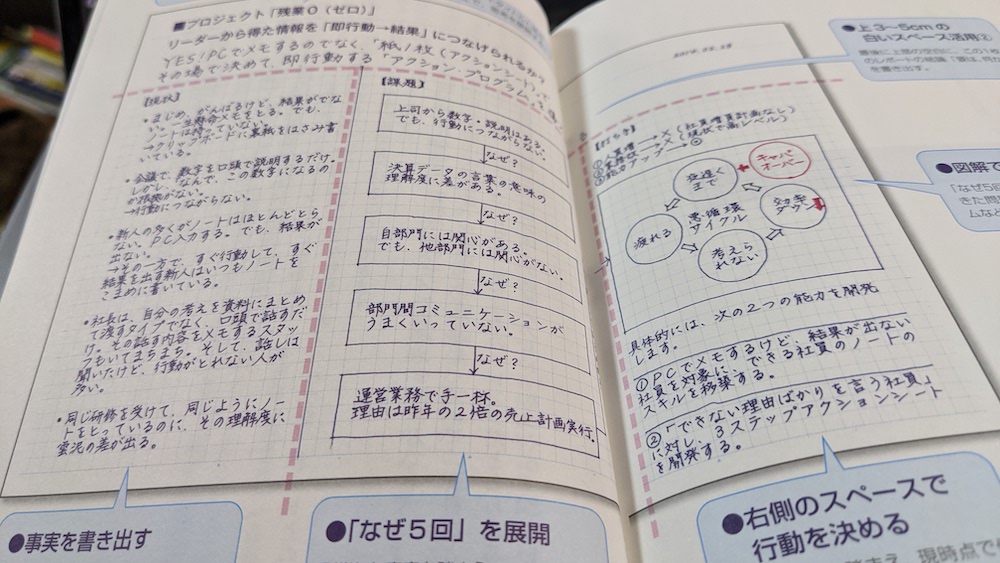 ■プロジェクト「残業0(ゼロ)」
リーダーから得た情報を「即行動→結果」につなげられるか?
YES/PCでメモするのでなく、「紙1枚(アクションシート)」で、
その場で決めて、即行動する「アクション・プログラム」を
【現状】
・まじめ、がんばるけど、結果がでな
い。一生懸命メモをとる。でも、
ノートは持っていない。
→クリップボードに裏紙をはさみ書
いている。
・会議で、数字を口頭で説明するだけ。
しかし、なんで、この数字になるの
か根拠がない。
→行動につながらない。
・新人の多くがノートはほとんどとら
ない。PC入力する。でも、結果が
出ない。
→その一方で、すぐ行動して、すぐ
結果を出す新人はいつもノートを
こまめに書いている。
・社長は、自分の考えを資料にまとめ
て渡すタイプでなく、口頭で話すだ
け。その話す内容をメモするスタッ
フもいてまちまち。そして、話しは
聞いたけど、行動がとれない人が
多い。
・同じ研修を受けて、同じようにノー
トをとっているのに、その理解度に
雲泥の差が出る。
【課題】
上司から数字・説明はある。
でも、行動につながらない。
なぜ?
決算データの言葉の意味の
理解度に差がある。
なぜ?
自部門には関心がある。
でも、他部門には関心がない。
なぜ?
部門間コミュニケーションが
うまくいっていない。
なぜ?
運営業務で手一杯。
理由は昨年の2倍の売上計画実行。
●事実を書き出す
●「なぜ5回」を展開
【打ち手】
①人員増 → X(社員増員計画なし)
X(現状で高レベル)
③能力アップ → ◎
夜遅く
まで
キャパ
オーバー
効率
ダウン
考えら
れない
疲れる
悪循環
サイクル
具体的には、次の2つの能力を開発
します。
①PCでメモするけど、結果が出ない
社員を対象に、できる社員のノートの
スキルを移築する。
②「できない理由ばかりを言う社員」
に対し、3ステップアクションシート
を開発する。
●右側のスペースで
行動を決める
現時点で
●上3〜5cmの
白いスペース活用②
のレポートの結論
を書き出す。
●図解で
「なぜ5
きた問
ムな